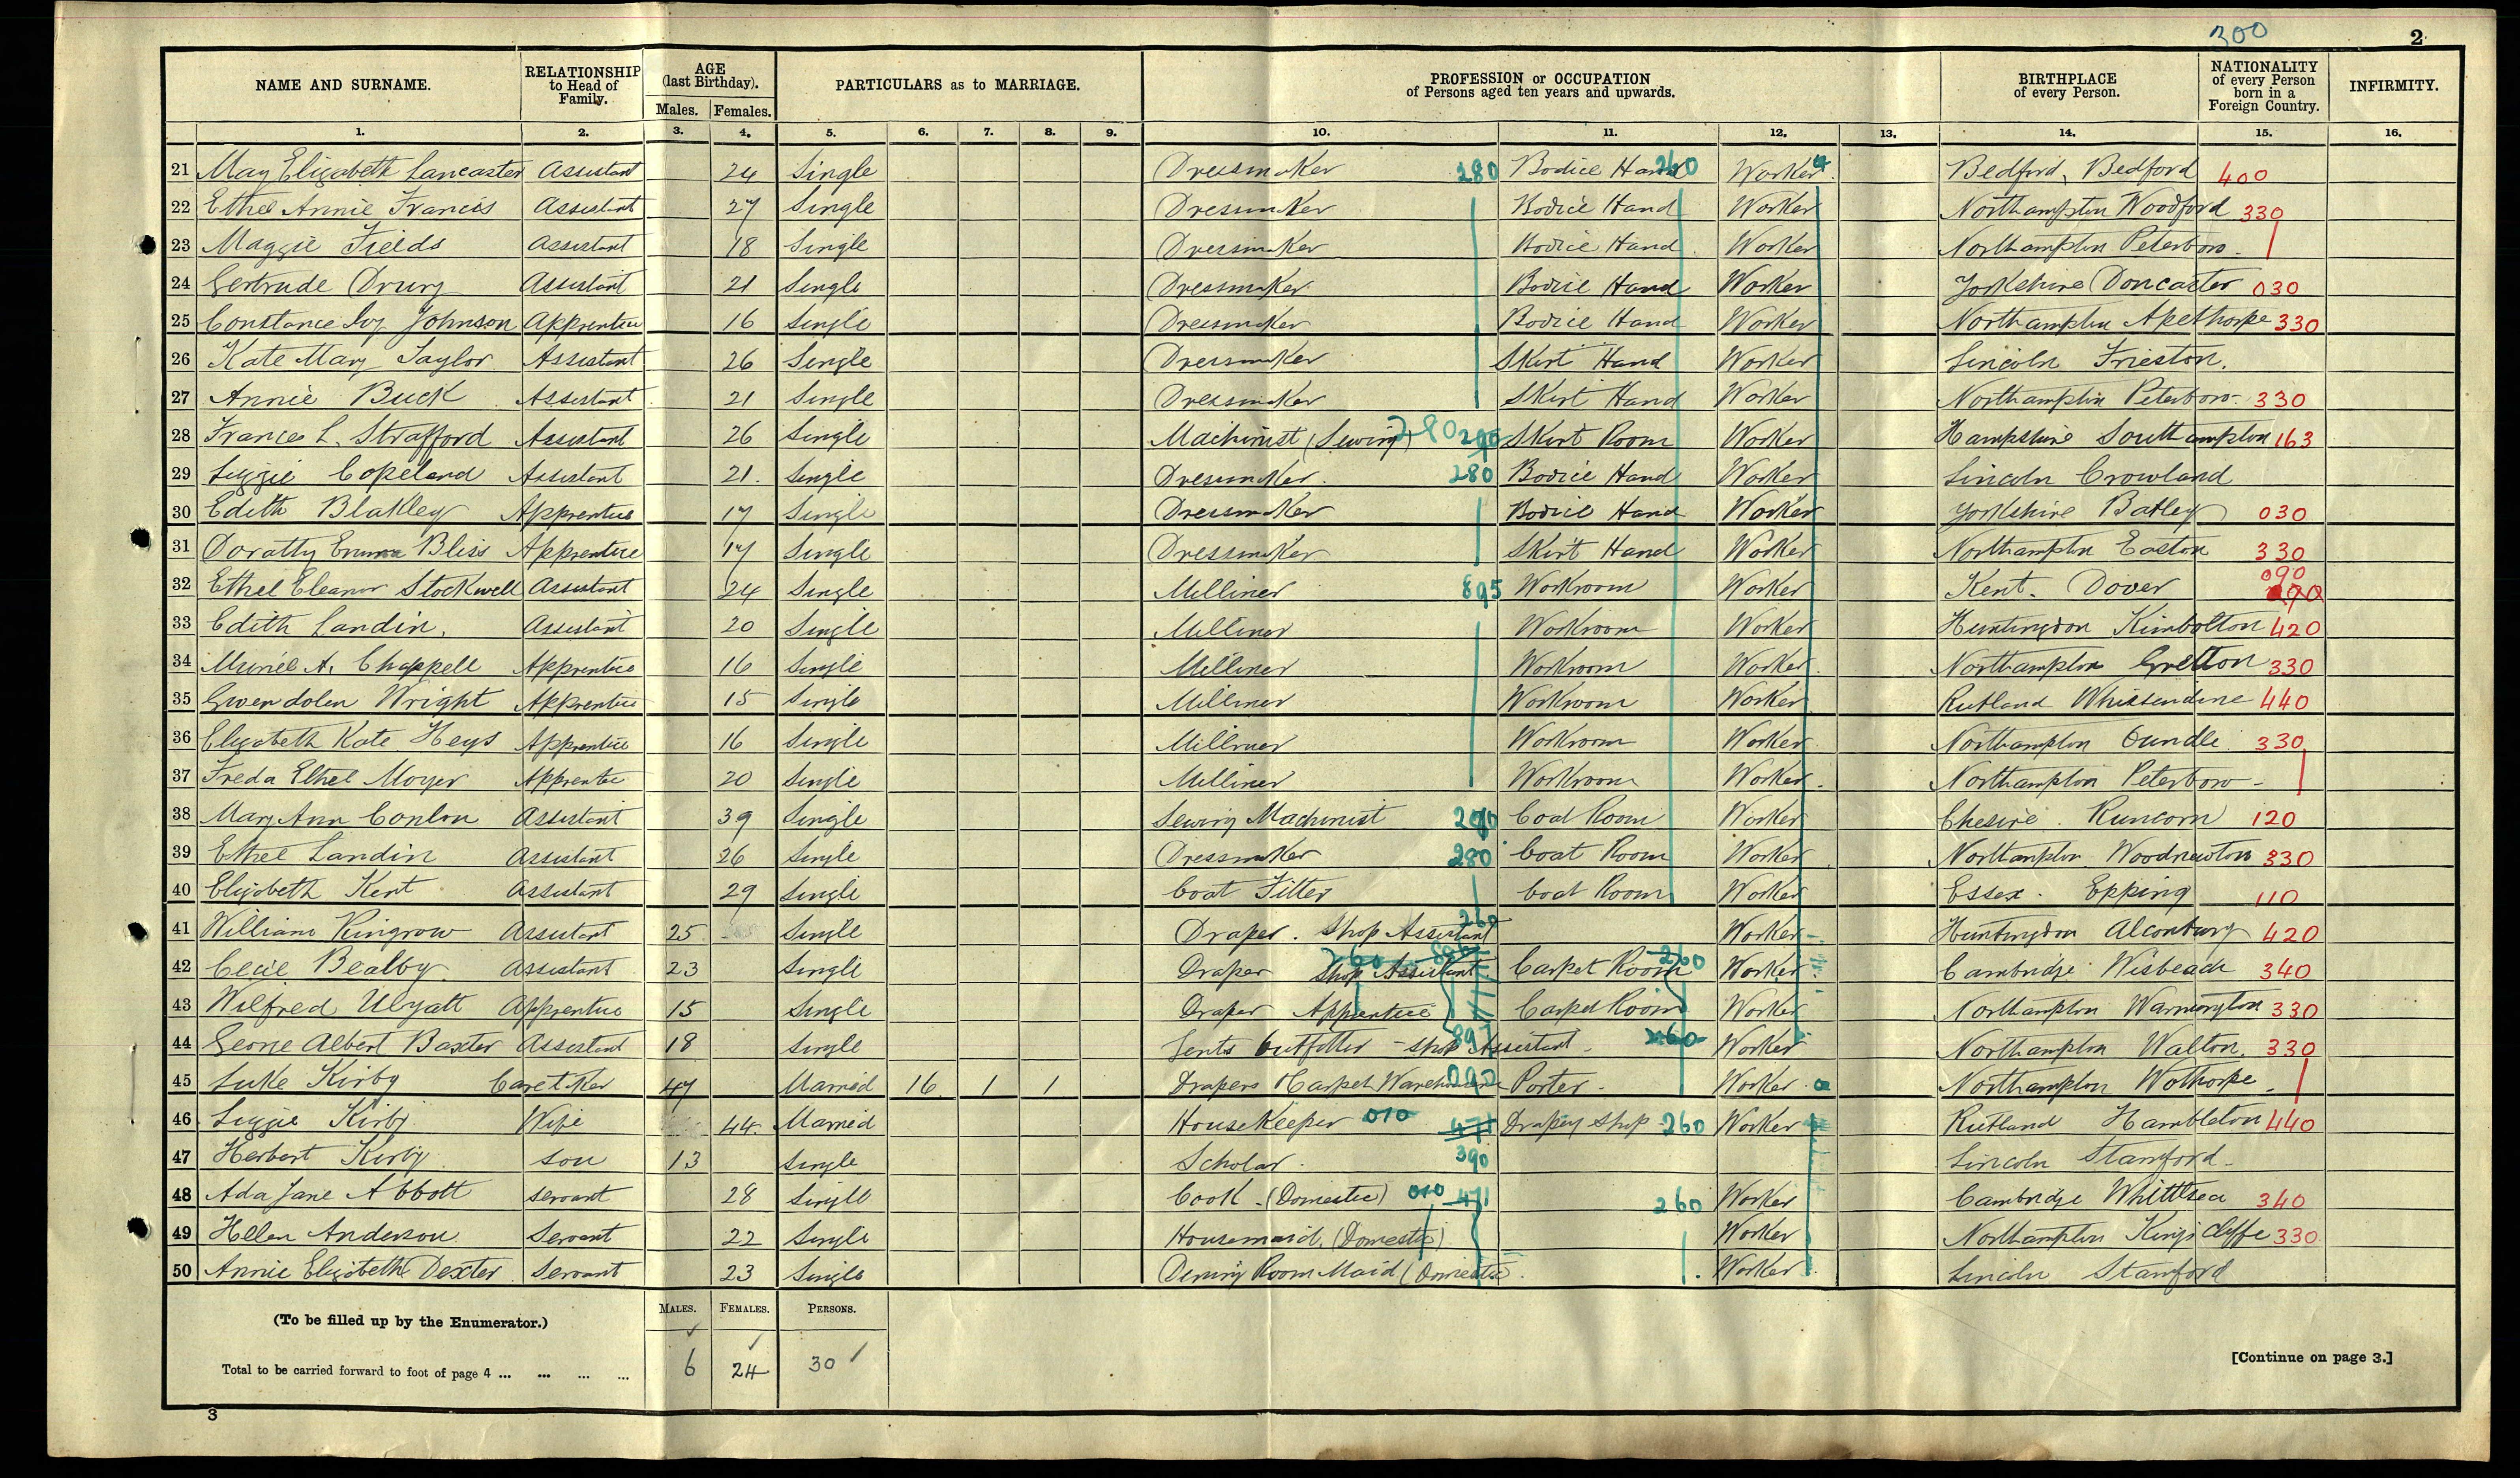 300
2
NAME AND SURNAME. RELATIONSHIP to Head of Family. AGE (last Birthday). PARTICULARS as to MARRIAGE. PROFESSION or OCCUPATION of Persons aged ten years and upwards. BIRTHPLACE of every Person. NATIONALITY of every Person born in a Foreign Country. INFIRMITY.
Males. Females.
1. 2. 3. 4. 5. 6. 7. 8. 9. 10. 11. 12. 13. 14. 15. 16.
21 May Elizabeth Lancaster Assistant 24 Single Dressmaker 280 Bodice Hand 260 Worker Bedford, Bedford 400
22 Ethel Annie Francis Assistant 27 Single Dressmaker Bodice Hand Worker Northampton Woodford 330
23 Maggie Fields Assistant 18 Single Dressmaker Bodice Hand Worker Northampton Peterboro -
24 Gertrude Drury Assistant 21 Single Dressmaker Bodice Hand Worker Yorkshire Doncaster 030
25 Constance Ivy Johnson Apprentice 16 Single Dressmaker Bodice Hand Worker Northampton Apethorpe 330
26 Kate Mary Taylor Assistant 26 Single Dressmaker Skirt Hand Worker Lincoln Frieston.
27 Annie Buck Assistant 21 Single Dressmaker Skirt Hand Worker Northampton Peterboro - 330
28 Frances L. Strafford Assistant 26 Single Machinist (Sewing) 280 Skirt Room Worker Hampshire Southampton 163
29 Lizzie Copeland Assistant 21. Single Dressmaker. 280 Bodice Hand Worker Lincoln Crowland
30 Edith Blakley Apprentice 17 Single Dressmaker Bodice Hand Worker Yorkshire Batley 030
31 Doratty Emma Bliss Apprentice 17 Single Dressmaker Skirt Hand Worker Northampton Easton 330
32 Ethel Eleanor Stockwell Assistant 24 Single Milliner 895 Workroom Worker Kent. Dover 090
33 Edith Landin. Assistant 20 Single Milliner Workroom Worker Huntingdon Kimbolton 420
34 Muriel A. Chappell Apprentice 16 Single Milliner Workroom Worker Northampton Gretton 330
35 Gwendolen Wright Apprentice 15 Single Milliner Workroom Worker Rutland Whissendine 440
36 Elizabeth Kate Heys Apprentice 16 Single Milliner Workroom Worker Northampton Oundle 330
37 Freda Ethel Moyer Apprentice 20 Single Milliner Workroom Worker Northampton Peterboro -
38 Mary Ann Conlon Assistant 39 Single Sewing Machinist Coat Room Worker Chesire. Runcorn 120
39 Ethel Landin Assistant 26 Single Dressmaker 280 Coat Room Worker Northampton Woodnewton 330
40 Elizabeth Kent Assistant 29 Single Coat Fitter Coat Room Worker Essex. Epping 110
41 William Ringrow Assistant 25 Single Draper. Shop Assistant 260 Worker Huntingdon Alconbury 420
42 Cecil Bealby Assistant 23 Single Draper Shop Assistant 260 Carpet Room 260 Worker Cambridge Wisbeach 340
43 Wilfred Ulyatt Apprentice 15 Single Draper Apprentice Carpet Room Worker Northampton Warmington 330
44 George Albert Baxter Assistant 18 Single Gents Outfitter - Shop Assistant - 260 Worker Northampton Walton. 330
45 Luke Kirby Caretaker 47 Married 16 1 1 Drapers & Carpet Porter - Worker Northampton Wothorpe -
46 Lizzie Kirby Wife 44 Married HouseKeeper 010 471 Drapery Shop 260 Worker Rutland Hambleton 440
47 Herbert Kirby son 13 Single Scholar. 390 Lincoln Stamford -
48 Ada Jane Abbott servant 28 Single Cook - (Domestic) 010 471 260 Worker Cambridge Whittlsea 340
49 Helen Anderson Servant 22 Single Housemaid. (Domestic) Worker Northampton Kings Cliffe 330
50 Annie Elizabeth Dexter Servant 23 Single Dining Room Maid (Domestic). Worker Lincoln Stamford
(To be filled up by the Enumerator.) MALES. FEMALES. PERSONS.
Total to be carried forward to foot of page 4 ... ... ... ... 6 24 30
[Continue on page 3.]
3